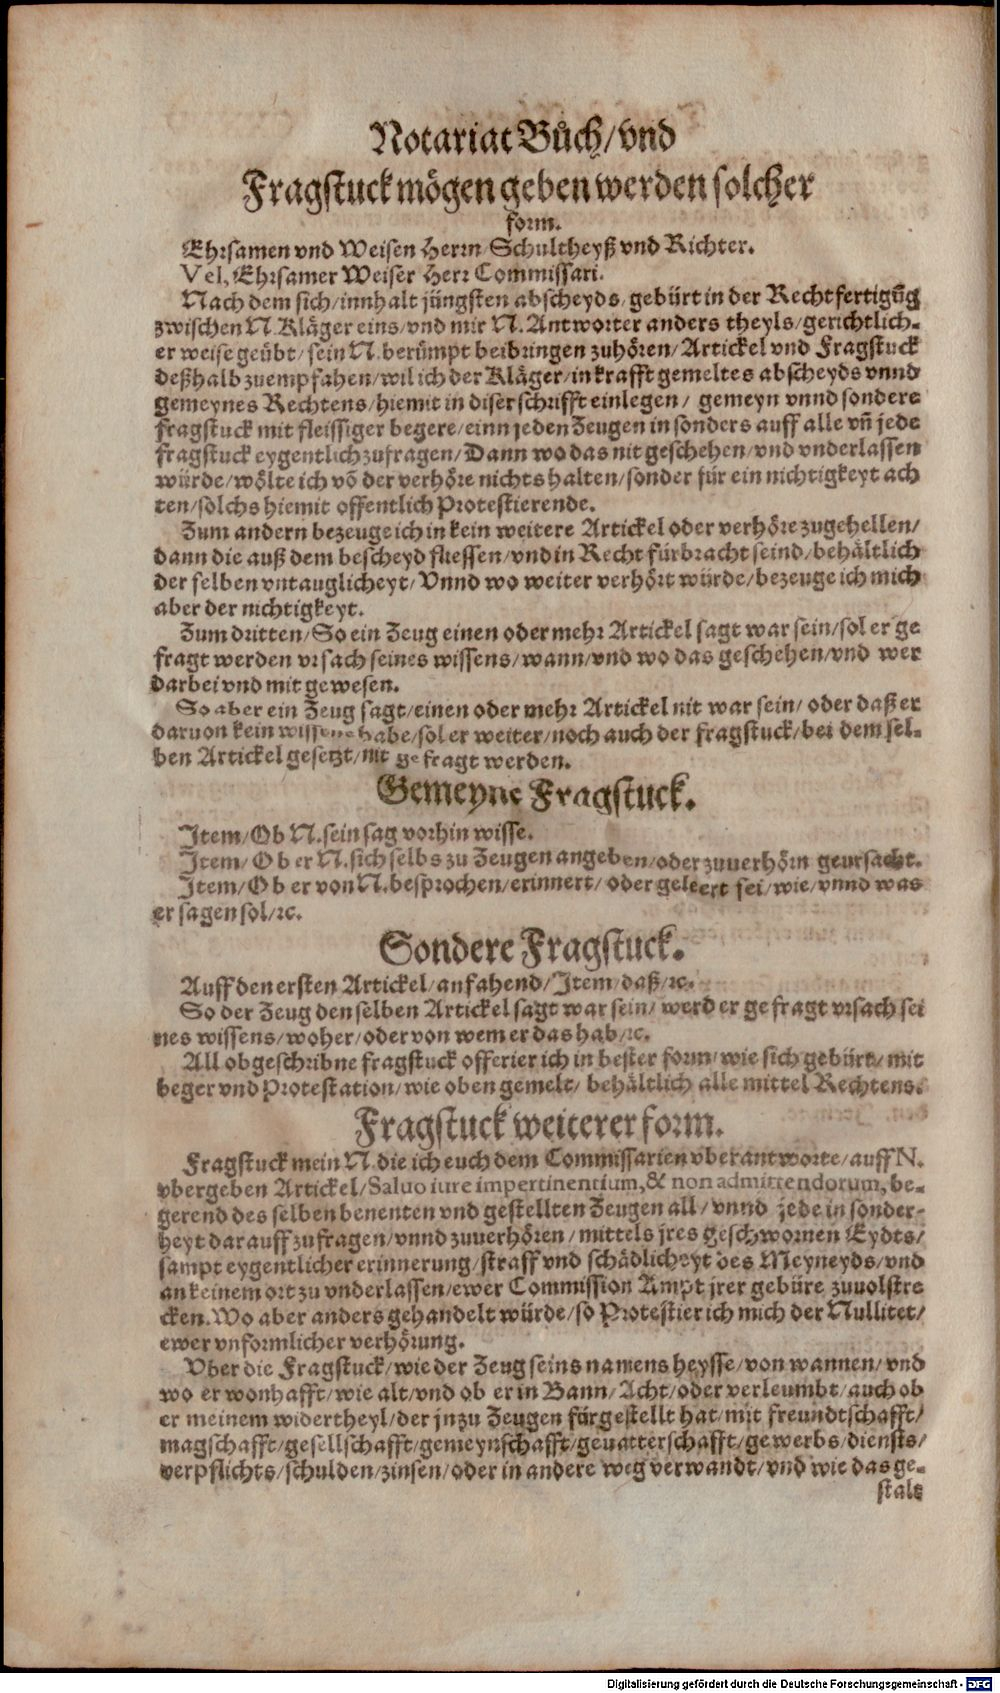 Notariat Bůch/vnd
Fragstuck mögen geben werden solcher
form.
Ehrsamen vnd Weisen Herrn/Schultheyß vnd Richter.
Vel, Ehrsamer Weiser Herr Commissari.
Nach dem sich/innhalt jüngsten abscheyds/gebürt in der Rechtfertigũg
zwischen N. Kläger eins/vnd mir N. Antworter anders theyls/gerichtlich-
er weise geübt/sein N. berümpt beibringen zuhören/Artickel vnd Fragstuck
deßhalb zuempfahen/wil ich der Kläger/in krafft gemeltes abscheyds vnnd
gemeynes Rechtens/hiemit in diser schrifft einlegen/ gemeyn vnnd sondere
fragstuck mit fleissiger begere/einn jeden Zeugen in sonders auff alle vñ jede
fragstuck eygentlich zufragen/Dann wo das nit geschehen/vnd vnderlassen
würde/wölte ich võ der verhöre nichts halten/sonder für ein nichtigkeyt ach
ten/solchs hiemit offentlich Protestierende.
Zum andern bezeuge ich in kein weitere Artickel oder verhöre zugehellen/
dann die auß dem bescheyd fliessen/vnd in Recht fürbracht seind/behältlich
der selben vntauglicheyt/Vnnd wo weiter verhört würde/bezeuge ich mich
aber der nichtigkeyt.
Zum dritten/So ein Zeug einen oder mehr Artickel sagt war sein/sol er ge
fragt werden vrsach seines wissens/wann/vnd wo das geschehen/vnd wer
darbei vnd mit gewesen.
So aber ein Zeug sagt/einen oder mehr Artickel nit war sein/oder daß er
daruon kein wissens habe/sol er weiter/noch auch der fragstuck/bei dem sel-
ben Artickel gesetzt/nit gefragt werden.
Gemeyne Fragstuck.
Item/Ob N. sein sag vorhin wisse.
Item/Ob er N. sich selbs zu Zeugen angeben/oder zuuerhörn geursacht.
Item/Ob er von N. besprochen/erinnert/oder geleert sei/wie/vnnd was
er sagen sol/ꝛc.
Sondere Fragstuck.
Auff den ersten Artickel/anfahend/Item/daß/ꝛc.
So der Zeug den selben Artickel sagt war sein/werd er gefragt vrsach sei
nes wissens/woher/oder von wem er das hab/ꝛc.
All obgeschribne fragstuck offerier ich in bester form/wie sich gebürt/mit
beger vnd Protestation/wie oben gemelt/behältlich alle mittel Rechtens.
Fragstuck weiterer form.
Fragstuck mein N. die ich euch dem Commissarien vberantworte/auff N.
vbergeben Artickel/Saluo iure impertinentium, & non admittendorum, be-
gerend des selben benenten vnd gestellten Zeugen all/vnnd jede in sonder-
heyt darauff zufragen/vnnd zuuerhören/mittels jres geschwornen Eydts/
sampt eygentlicher erinnerung/straff vnd schädlicheyt des Meyneyds/vnd
an keinem ort zu vnderlassen/ewer Commission Ampt jrer gebüre zuuolstre
cken. Wo aber anders gehandelt würde/so Protestier ich mich der Nullitet/
ewer vnformlicher verhörung.
Vber die Fragstuck/wie der Zeug seins namens heysse/von wannen/vnd
wo er wonhafft/wie alt/vnd ob er in Bann/Acht/oder verleumbt/auch ob
er meinem widertheyl/der jn zu Zeugen fürgestellt hat/mit freundtschafft/
magschafft/gesellschafft/gemeynschafft/geuatterschafft/gewerbs/diensts/
verpflichts/schulden/zinsen/oder in andere weg verwandt/vnd wie das ge-
stalt
Digitalisierung gefördert durch die Deutsche Forschungsgemeinschaft - DFG